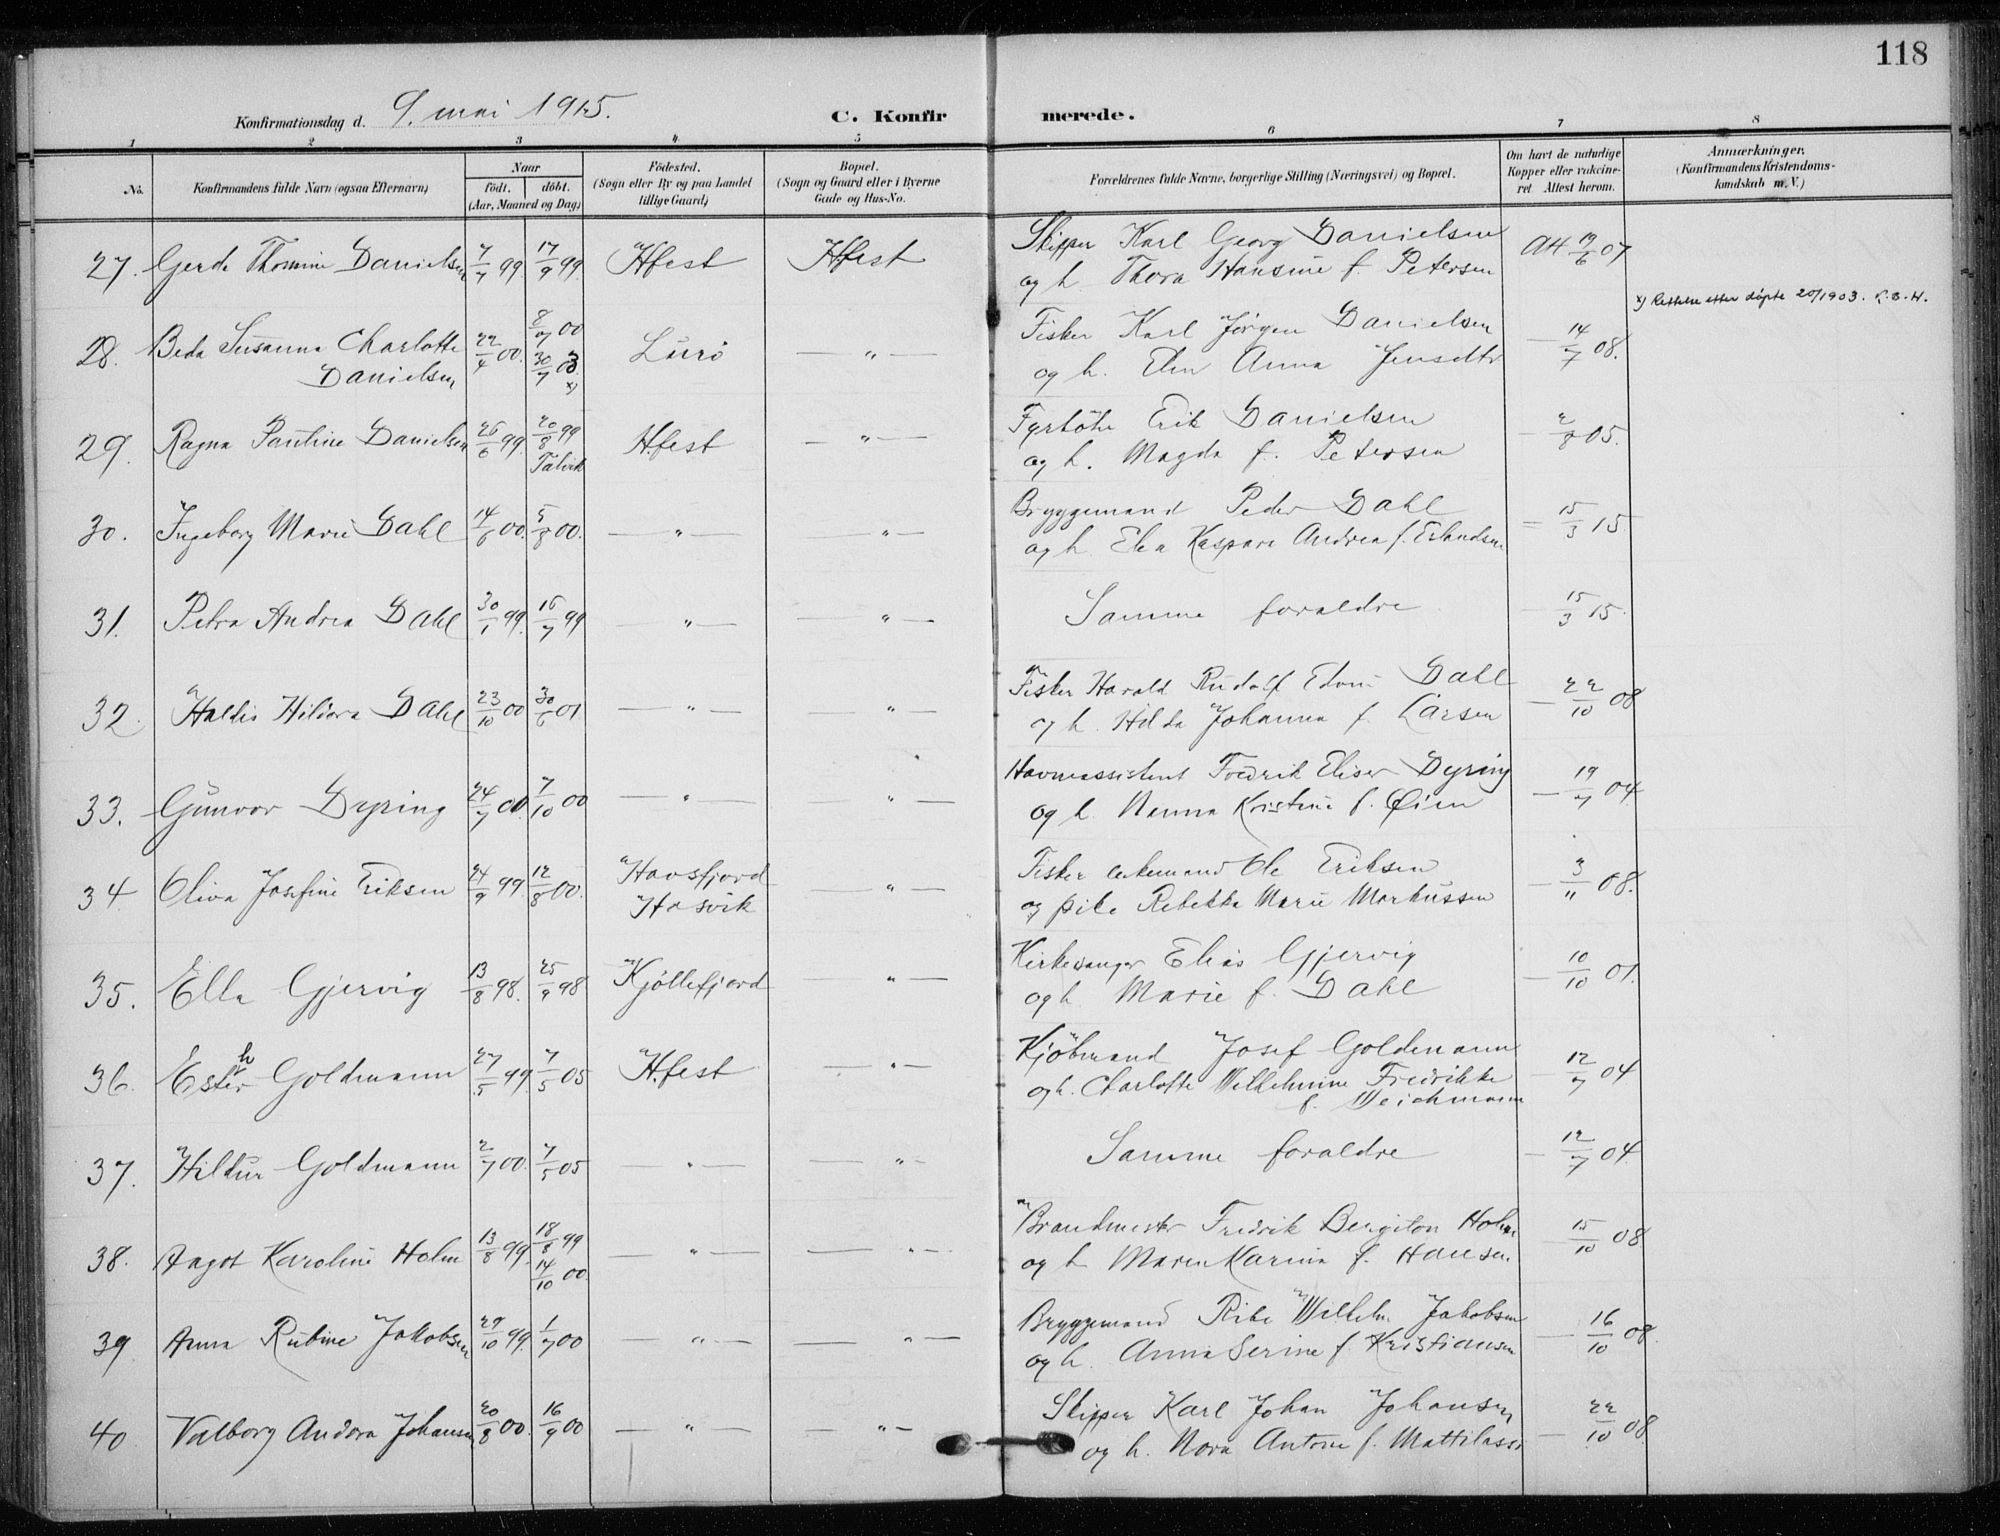 118
Konfirmationsdag d. 9. mai 1915. C. Konfirmerede.
1 2 3 4 5 6 7 8
No.
Konfirmandens fulde Navn (ogsaa Efternavn)
Naar
födt. döbt.
(Aar, Maaned og Dag)
Födested.
(Sogn eller By og paa Landet
tillige Gaard)
Bopæl.
(Sogn og Gaard eller i Byerne
Gade og Hus-No.
Forældrenes fulde Navne, borgerlige Stilling (Næringsvei) og Bopæl.
Om havt de naturlige
Kopper eller vakcine-
ret Attest herom.
Anmærkninger.
(Konfirmandens Kristendoms-
kundskab m. V.)
27. Gerda Thomine Danielsen 7/7 99 17/9 99 Hfest Hfest Skipper Karl Georg Danielsen AH 19/6 07
og h. Thora Hansine f. Petersen
x) Rettelse etter döpte 20/1903. K.B.H.
28. Beda Susanna Charlotte 22/4 00. 8/7 00 Lurö — " — Fisker Karl Jörgen Danielsen — 14/7 08.
Danielsen 30/7 03 x) og h. Elen Anna Jensdtr
29. Ragna Pauline Danielsen 26/6 99. 20/8 99 H.fest — " — Fyrböter Erik Danielsen — 2/8 05.
Talvik og h. Magda f. Petersen
30. Ingeborg Marie Dahl 14/6 00. 5/8 00. — " — — " — Bryggemand Peder Dahl — 15/3 15
og h. Elea Kaspara Andrea f. Erlandsen
31. Petra Andrea Dahl 30/1 99. 16/7 99 — " — — " — Samme foraldre — 15/3 15.
32. Haldis Hildora Dahl 23/10 00 30/6 01. — " — — " — Fisker Harald Rudolf Edvin Dahl — 22/10 08
og h. Hilda Johanna f. Larsen
33. Gunvor Dyring 24/7 00. 7/10 00 — " — — " — Havneassistent Fredrik Eliser Dyring — 19/7 04
og h. Nanna Kristine f. Øien
34 Oliva Josefine Eriksen 24/9 99. 12/8 00. Havsfjord — " — Fisker enkemand Ole Eriksen — 3/11 08.
Hasvik og pike Rebekka Marie Markussen
35. Ella Gjervig 13/8 98. 25/9 98 Kjöllefjord " — Kirkesanger Elias Gjervig — 10/10 01.
og h. Marie f. Dahl
36. Esther Goldmann 27/5 99. 7/5 05 H.fest — " — Kjöbmand Josef Goldmann — 12/7 04
og h. Charlotte Wilhelmine Fredrikke
f. Weichmann
37. Hildur Goldmann 2/7 00. 7/5 05 " — — " — Samme foraldre — 12/7 04.
38. Aagot Karoline Holm 13/8 99. 18/8 99 — " — — " — Brandmester Fredrik Bergiton Holm — 15/10 08
14/10 00. og h Maren Karina f. Hansen.
39 Anna Rubine Jakobsen 29/10 99. 1/7 00 — " — — " — Bryggemand Ribe Wilhelm Jakobsen — 16/10 08.
og h. Anna Serine f. Kristiansen
40. Valborg Andora Johansen 20/8 00. 16/9 00 — " — — " — Skipper Karl Johan Johansen — 22/10 08
og h. Nora Antone f.